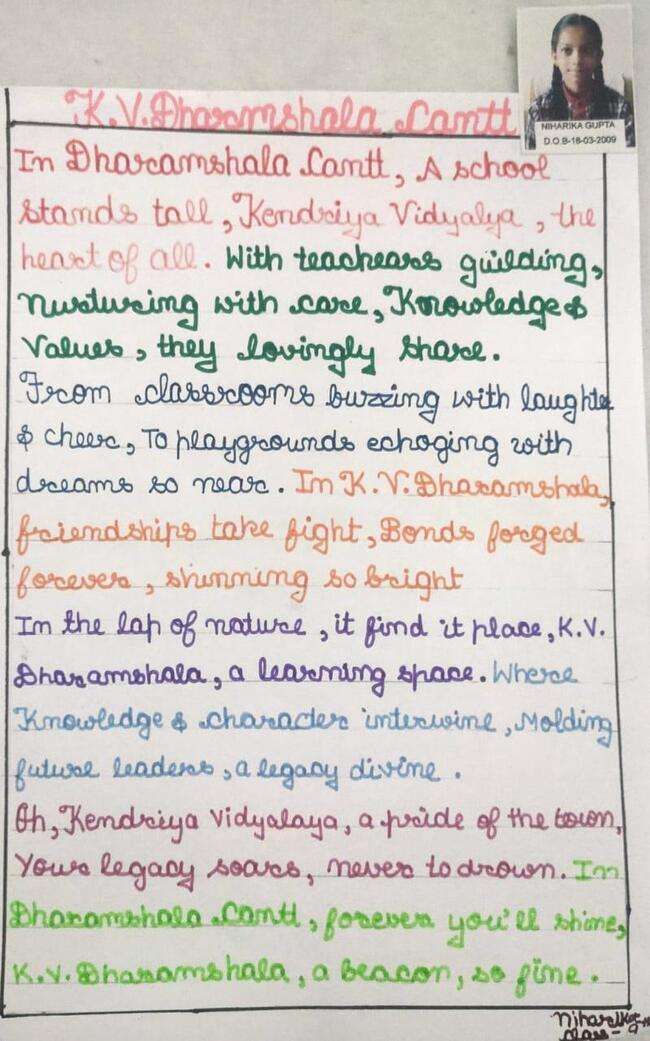 K.V. Dharamshala Cantt
NIHARIKA GUPTA
D.O.B-18-03-2009
In Dharamshala Cantt, A school
stands tall, Kendriya Vidyalya, the
heart of all. With teachears guilding,
nurturing with care, Knowledge &
Values, they lovingly share.
From classrooms buzzing with laughter
& cheer, To playgrounds echoging with
dreams so near. In K.V. Dharamshala,
friendships take fight, Bonds forged
forever, shinning so bright
In the lap of nature, it find it place, K.V.
Dharamshala, a learning space. Where
Knowledge & character interwine, Molding
future leaders, a legacy divine.
Oh, Kendriya Vidyalaya, a pride of the town,
Your legacy soars, never to drown. In
Dharamshala Cantt, forever you'll shine,
K.V. Dharamshala, a beacon, so fine.
class-